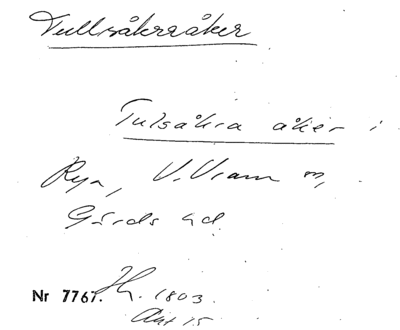 Tullsåkraåker
Tulsåkra åker i
Rya, V. Vram m,
Gärds hd.
Nr 7767. H. 1803.
Akt 15